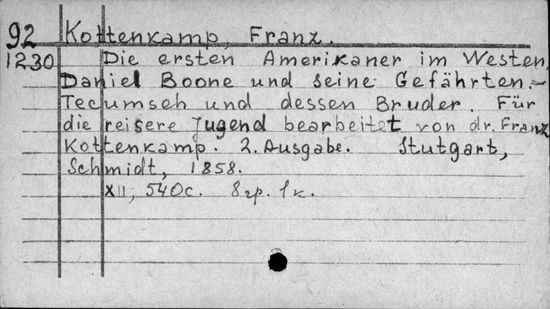 92 Kottenkamp, Franz.
1230 Die ersten Amerikaner im Westen.
Daniel Boone und seine Gefährten.-
Tecumseh und dessen Bruder. Für
die reisere Jugend bearbeitet von dr. Franz
Kottenkamp. 2. Ausgabe. Stutgart,
Schmidt, 1858.
XII, 540c. 8гр. 1к.